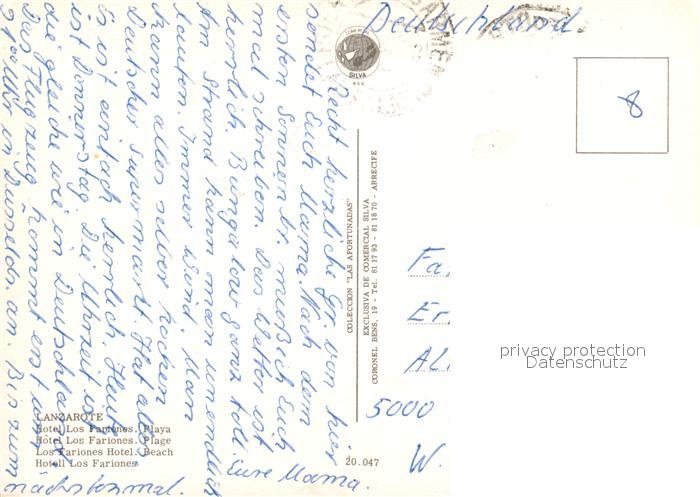 Deutschland
SILVA
8
Recht herzliche Gr. von hier
sendet Euch Mama. Nach dem
ersten Sonnenbr. muß ich Euch
mal schreiben. Das Wetter ist
herrlich. Bungalow ganz toll.
Am Strand kann man unendlich
laufen. Immer Wind. Man
kann alles selber kochen
Deutscher Supermarkt Hat alles.
Es ist einfach herrlich Heute
ist Donnerstag. Die Uhrzeit ist
die gleiche wie in Deutschland.
Das Flugzeug kommt erst um
Uhr in Düsseld. an. Bis zum
nächstenmal. Eure Mama.
COLECCION "LAS AFORTUNADAS"
EXCLUSIVA DE COMERCIAL SILVA
CORONEL BENS, 19 - Tel. 81 17 93 - 81 18 70 - ARRECIFE
Fa.
Er.
Al.
5000
W.
privacy protection
Datenschutz
LANZAROTE
Hotel Los Fariones. Playa
Hotel Los Fariones. Plage
Los Fariones Hotel. Beach
Hotell Los Fariones
20.047